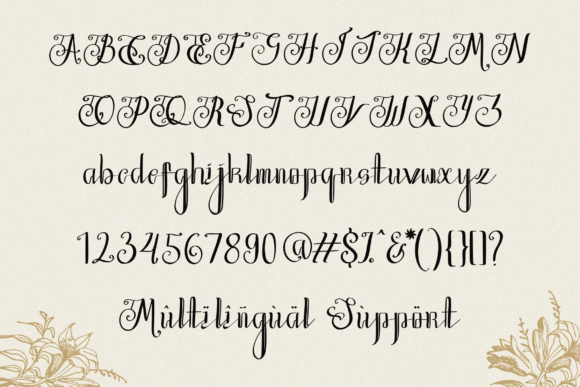 ABCDEFGHIJKLMN
OPQRSTUVWXYZ
abcdefghijklmnopqrstuvwxyz
1234567890@#$%^&*(){}[]?
Mûltïlîñgùäl Sùppört